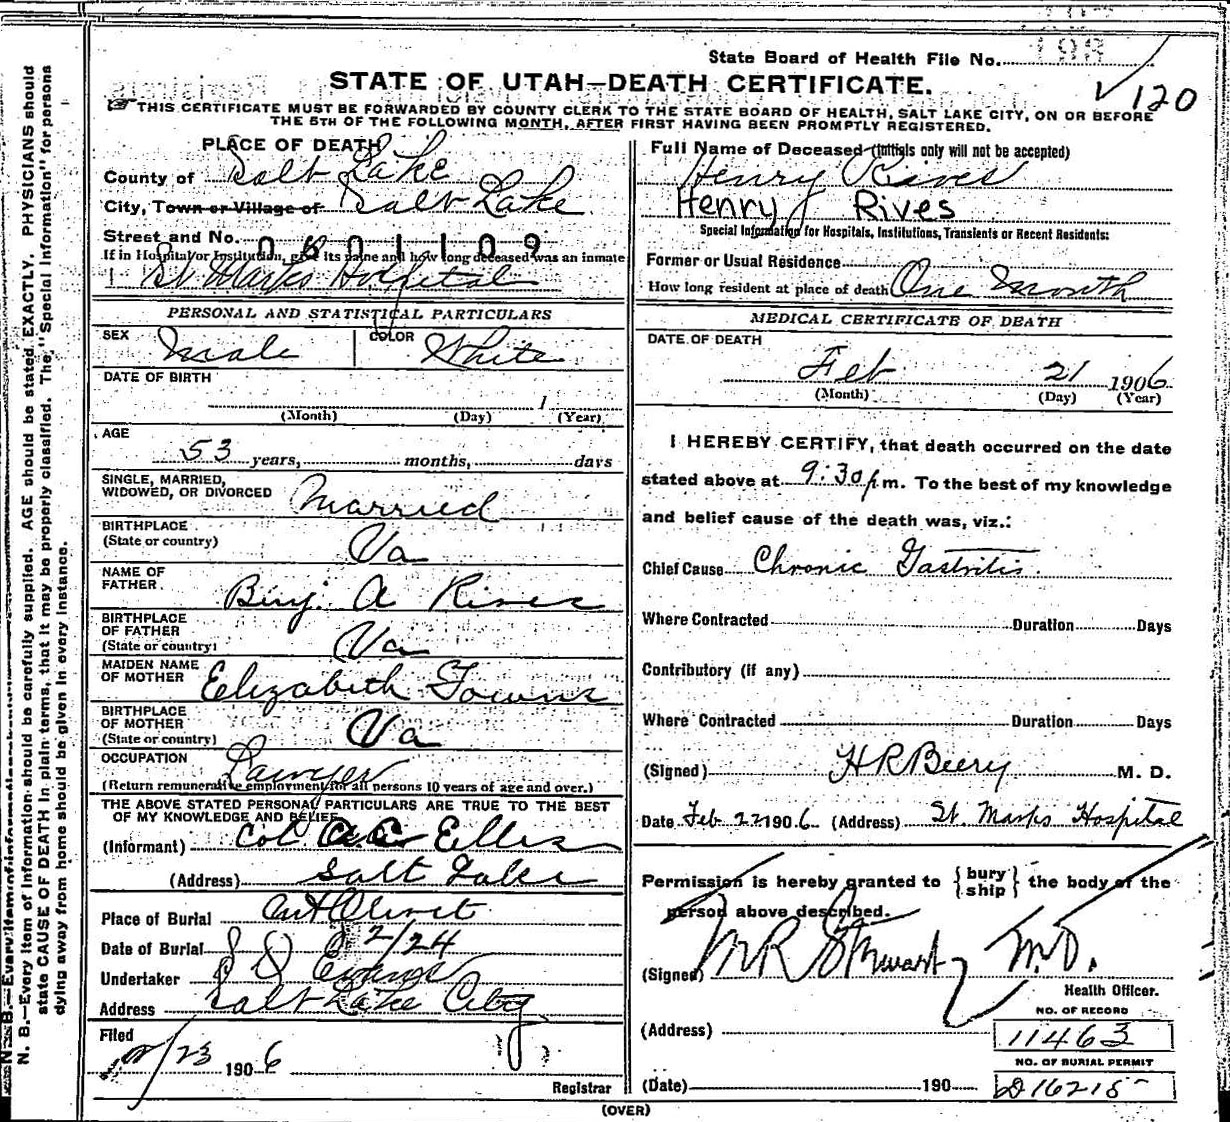 State Board of Health File No.
STATE OF UTAH—DEATH CERTIFICATE.
120
THIS CERTIFICATE MUST BE FORWARDED BY COUNTY CLERK TO THE STATE BOARD OF HEALTH, SALT LAKE CITY, ON OR BEFORE
THE 5TH OF THE FOLLOWING MONTH, AFTER FIRST HAVING BEEN PROMPTLY REGISTERED.
PLACE OF DEATH
County of Salt Lake
City, Town or Village of Salt Lake
Street and No. 0601109
If in Hospital or Institution, give its name and how long deceased was an inmate
St Marks Hospital
PERSONAL AND STATISTICAL PARTICULARS
SEX Male COLOR White
DATE OF BIRTH
1
(Month) (Day) (Year)
AGE
53 years, months, days
SINGLE, MARRIED,
WIDOWED, OR DIVORCED Married
BIRTHPLACE
(State or country) Va
NAME OF
FATHER Benj. A Rives
BIRTHPLACE
OF FATHER
(State or country) Va
MAIDEN NAME
OF MOTHER Elizabeth Towns
BIRTHPLACE
OF MOTHER
(State or country) Va
OCCUPATION Lawyer
(Return remunerative employment for all persons 10 years of age and over.)
THE ABOVE STATED PERSONAL PARTICULARS ARE TRUE TO THE BEST
OF MY KNOWLEDGE AND BELIEF
(Informant) Col A.C. Ellis
(Address) Salt Lake
Place of Burial Mt Olivet
Date of Burial 2/24
Undertaker S D Evans
Address Salt Lake City
Filed
2/23 1906
Registrar
Full Name of Deceased (Initials only will not be accepted)
Henry Rives
Henry Rives
Special Information for Hospitals, Institutions, Transients or Recent Residents:
Former or Usual Residence
How long resident at place of death One Month
MEDICAL CERTIFICATE OF DEATH
DATE OF DEATH
Feb 21 1906
(Month) (Day) (Year)
I HEREBY CERTIFY, that death occurred on the date
stated above at 9:30 p.m. To the best of my knowledge
and belief cause of the death was, viz.:
Chief Cause Chronic Gastritis.
Where Contracted Duration Days
Contributory (if any)
Where Contracted Duration Days
(Signed) H R Beery M. D.
Date Feb 22 1906 (Address) St. Marks Hospital
Permission is hereby granted to {bury ship} the body of the
person above described.
(Signed) M R Stewart M.D.
Health Officer.
(Address)
NO. OF RECORD
11463
NO. OF BURIAL PERMIT
(Date) 190
D 16215
(OVER)
N. B.—Every item of information should be carefully supplied. AGE should be stated EXACTLY. PHYSICIANS should
state CAUSE OF DEATH in plain terms, that it may be properly classified. The "Special Information" for persons
dying away from home should be given in every instance.